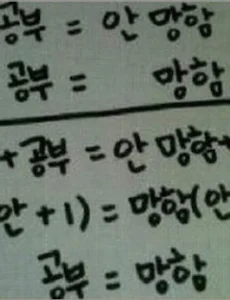 공부 = 안 망함
공부 = 망함
+ 공부 = 안 망함+
안 +1) = 망함(안
공부 = 망함